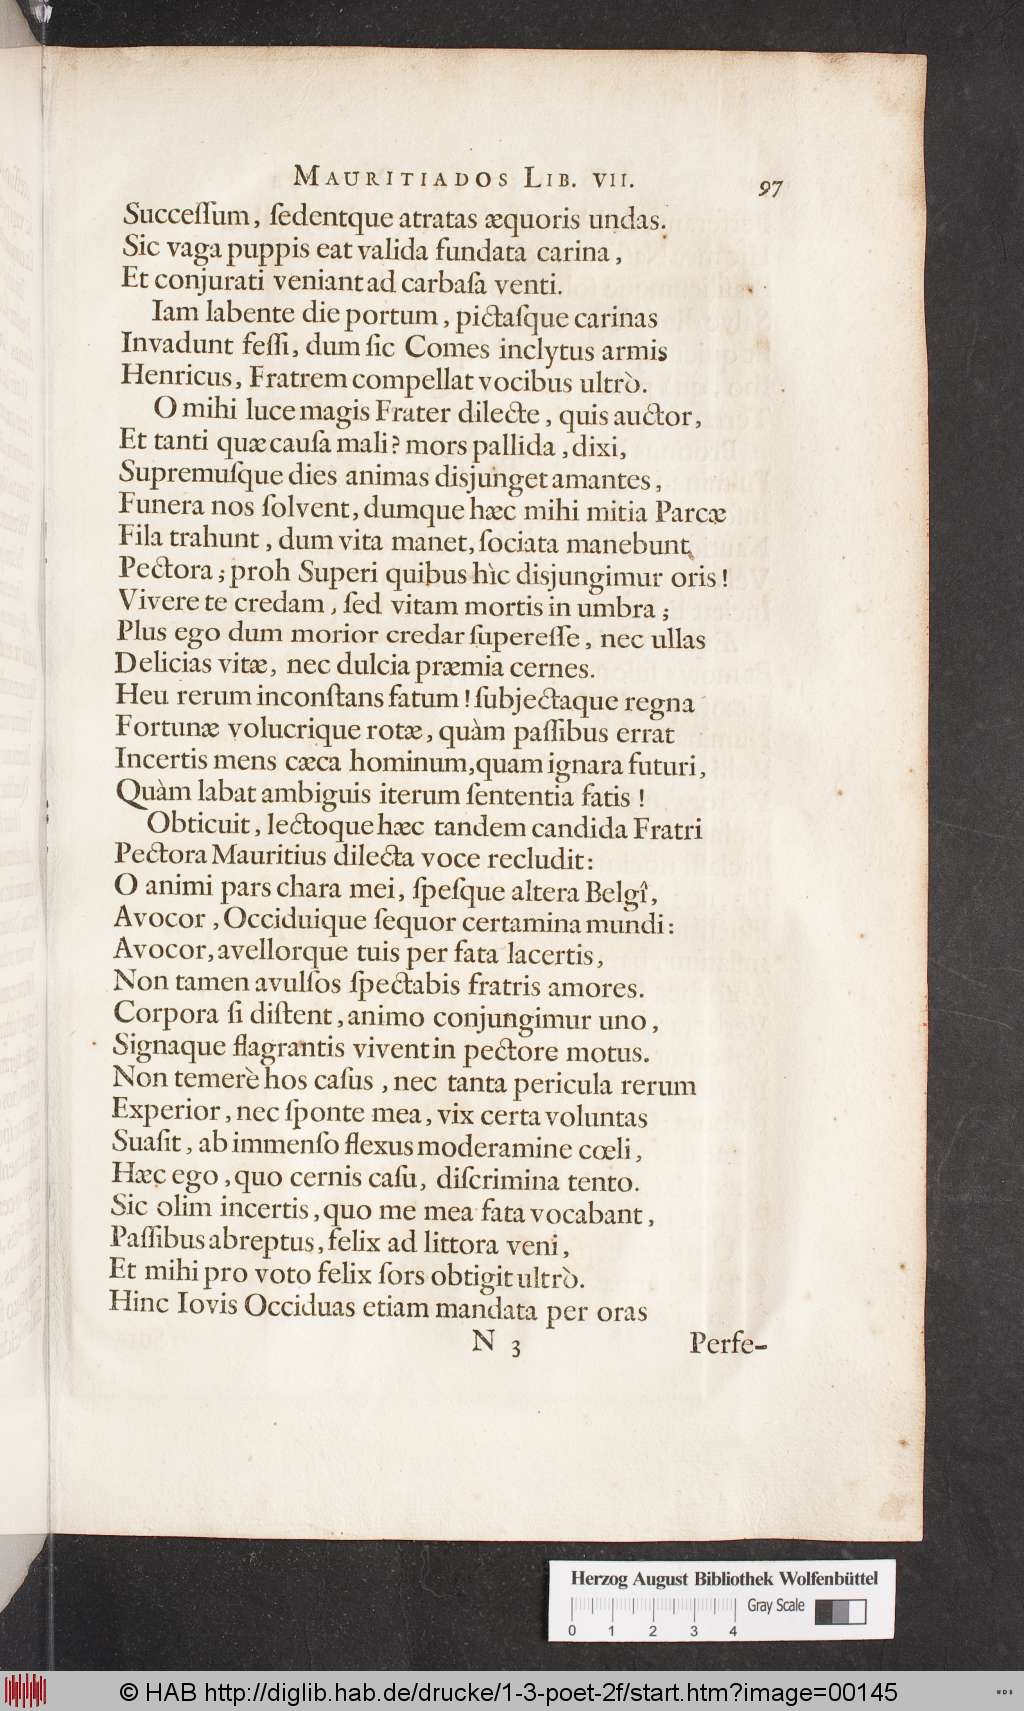 MAURITIADOS LIB. VII. 97
Succeſſum, ſedentque atratas æquoris undas.
Sic vaga puppis eat valida fundata carina,
Et conjurati veniant ad carbaſa venti.
Iam labente die portum, pictaſque carinas
Invadunt feſſi, dum ſic Comes inclytus armis
Henricus, Fratrem compellat vocibus ultrò.
O mihi luce magis Frater dilecte, quis auctor,
Et tanti quæ cauſa mali? mors pallida, dixi,
Supremuſque dies animas disjunget amantes,
Funera nos ſolvent, dumque hæc mihi mitia Parcæ
Fila trahunt, dum vita manet, ſociata manebunt
Pectora; proh Superi quibus hìc disjungimur oris!
Vivere te credam, ſed vitam mortis in umbra;
Plus ego dum morior credar ſupereſſe, nec ullas
Delicias vitæ, nec dulcia præmia cernes.
Heu rerum inconſtans fatum! ſubjectaque regna
Fortunæ volucrique rotæ, quàm paſſibus errat
Incertis mens cæca hominum, quam ignara futuri,
Quàm labat ambiguis iterum ſententia fatis!
Obticuit, lectoque hæc tandem candida Fratri
Pectora Mauritius dilecta voce recludit:
O animi pars chara mei, ſpeſque altera Belgî,
Avocor, Occiduique ſequor certamina mundi:
Avocor, avellorque tuis per fata lacertis,
Non tamen avulſos ſpectabis fratris amores.
Corpora ſi diſtent, animo conjungimur uno,
Signaque flagrantis vivent in pectore motus.
Non temerè hos caſus, nec tanta pericula rerum
Experior, nec ſponte mea, vix certa voluntas
Suaſit, ab immenſo flexus moderamine cœli,
Hæc ego, quo cernis caſu, diſcrimina tento.
Sic olim incertis, quo me mea fata vocabant,
Paſſibus abreptus, felix ad littora veni,
Et mihi pro voto felix ſors obtigit ultrò.
Hinc Iovis Occiduas etiam mandata per oras
N 3 Perfe-
Herzog August Bibliothek Wolfenbüttel
Gray Scale
0 1 2 3 4
© HAB http://diglib.hab.de/drucke/1-3-poet-2f/start.htm?image=00145